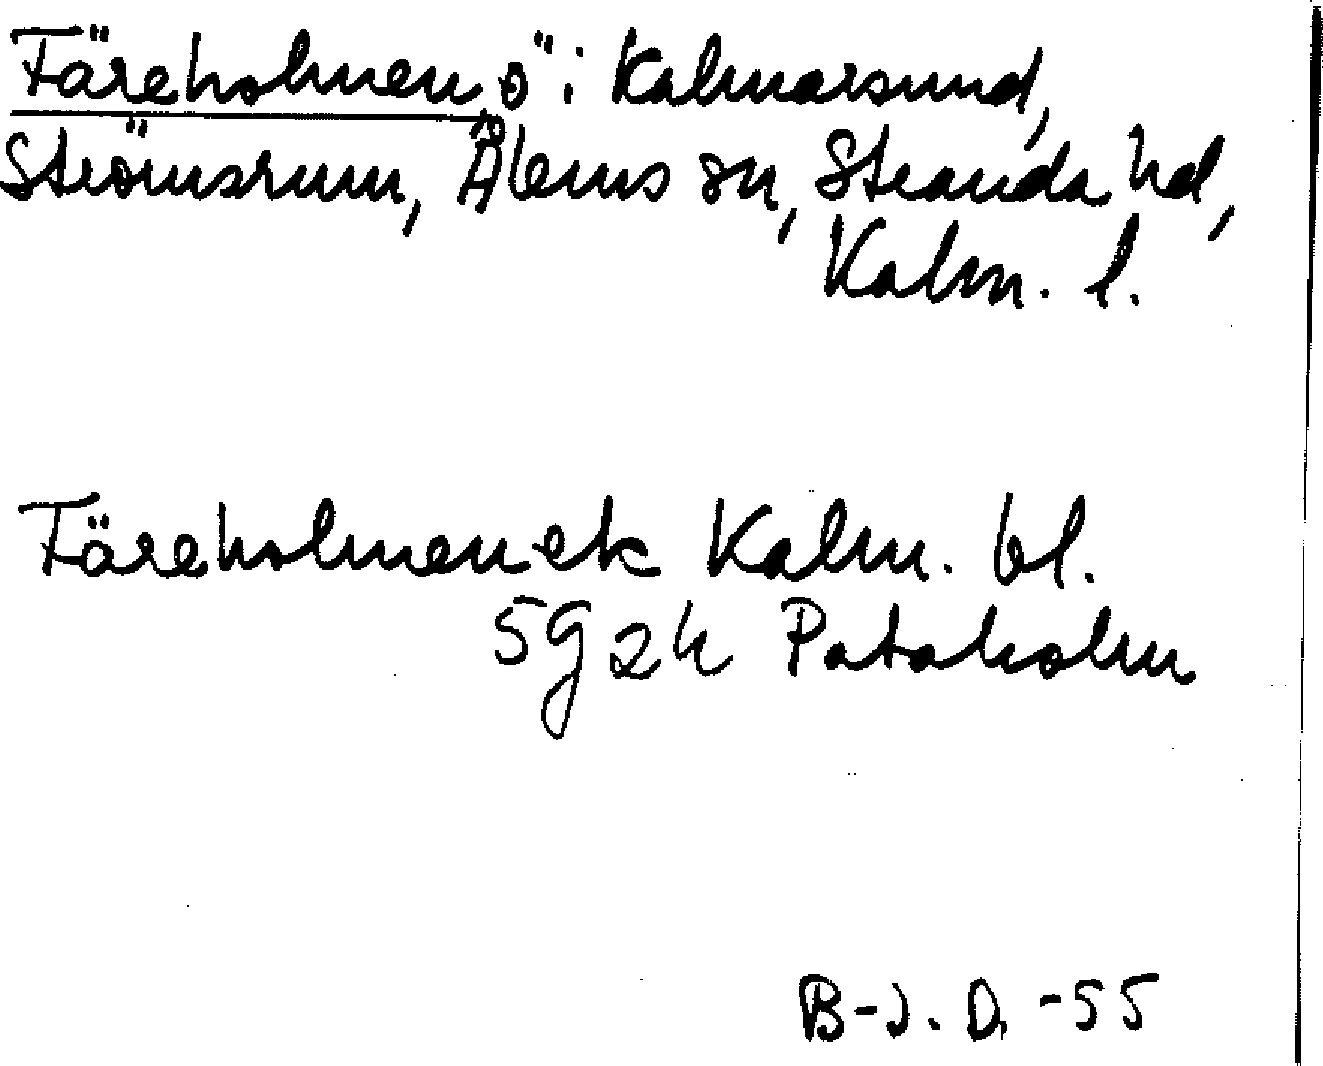 Färeholmen, ö i Kalmarsund,
Strömsrum, Ålems sn, Stranda hd,
Kalm. l.
Färeholmen ek Kalm. bl.
5g2h Pataholm
B-J. D. -55